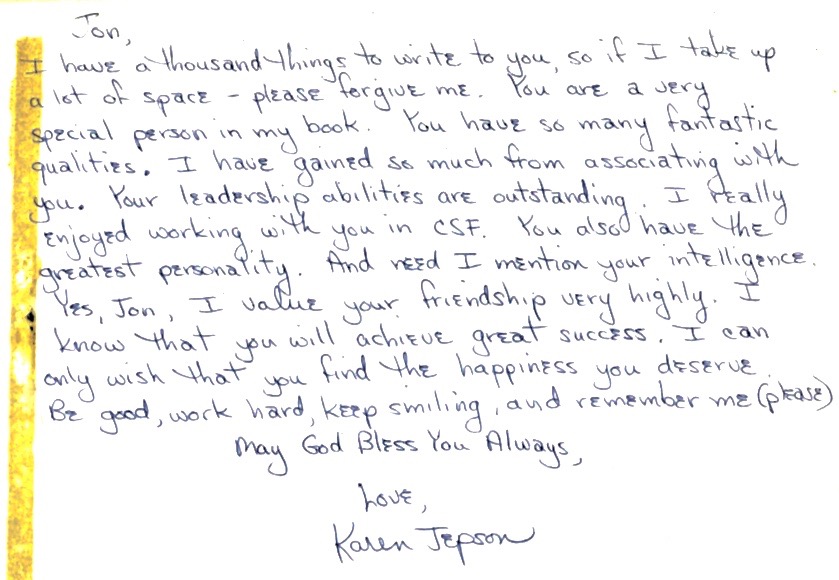 Jon,
I have a thousand things to write to you, so if I take up
a lot of space - please forgive me. You are a very
special person in my book. You have so many fantastic
qualities. I have gained so much from associating with
you. Your leadership abilities are outstanding. I really
enjoyed working with you in CSF. You also have the
greatest personality. And need I mention your intelligence.
Yes, Jon, I value your friendship very highly. I
know that you will achieve great success. I can
only wish that you find the happiness you deserve.
Be good, work hard, keep smiling, and remember me (please)
May God Bless You Always,
Love,
Karen Jepson